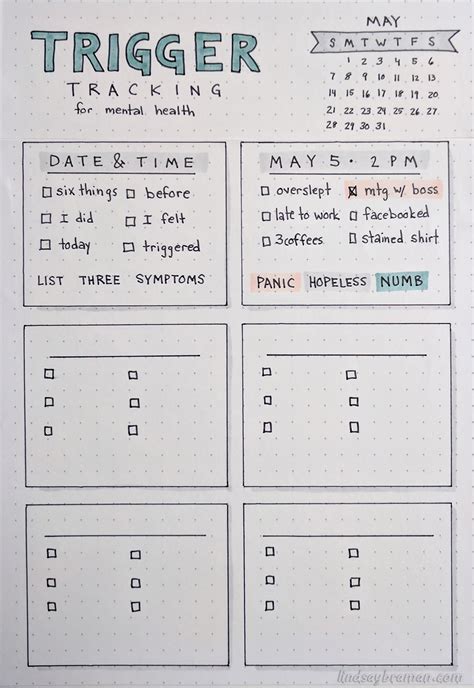 TRIGGER
TRACKING
for mental health
MAY
S M T W T F S
1 2 3 4 5 6
7 8 9 10 11 12 13
14 15 16 17 18 19 20
21 22 23 24 25 26 27
28 29 30 31
DATE & TIME
six things before
I did I felt
today triggered
LIST THREE SYMPTOMS
MAY 5 · 2 PM
overslept mtg w/ boss
late to work facebooked
3 coffees stained shirt
PANIC HOPELESS NUMB
lindsaybraman.com